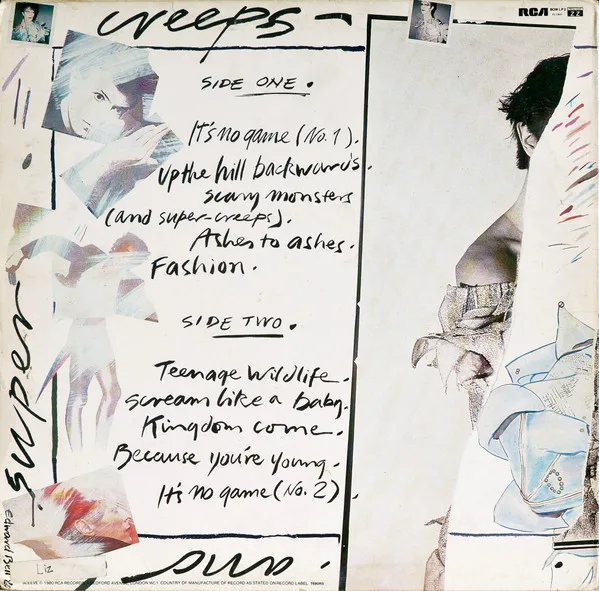 creeps -
RCA
SIDE ONE.
It's no game (No. 1).
Up the hill backwards.
scary monsters
(and super-creeps).
Ashes to ashes.
Fashion.
SIDE TWO.
Teenage Wildlife.
scream like a baby.
Kingdom come.
Because you're young.
It's no game (No. 2).
super
and
Edward Bell
Liz
1980 RCA RECORDS, BEDFORD AVENUE, LONDON WC1. COUNTRY OF MANUFACTURE OF RECORD AS STATED ON RECORD LABEL.